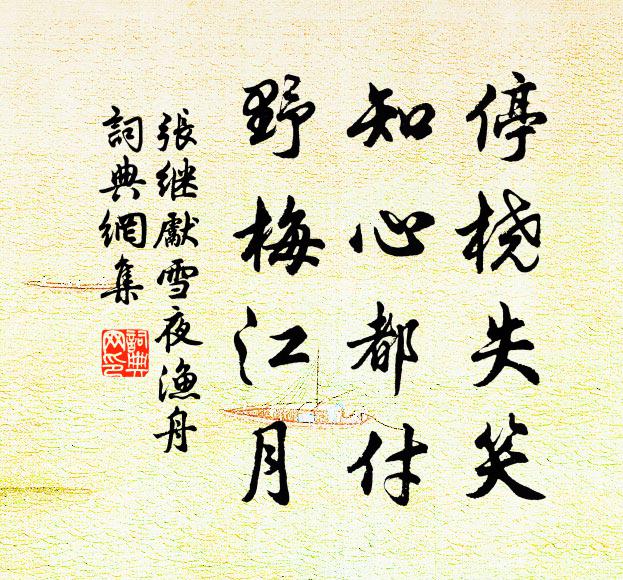 停桡失笑
知心都付
野梅江月
張继獻雪夜漁舟
詞典網集
詞典
网印